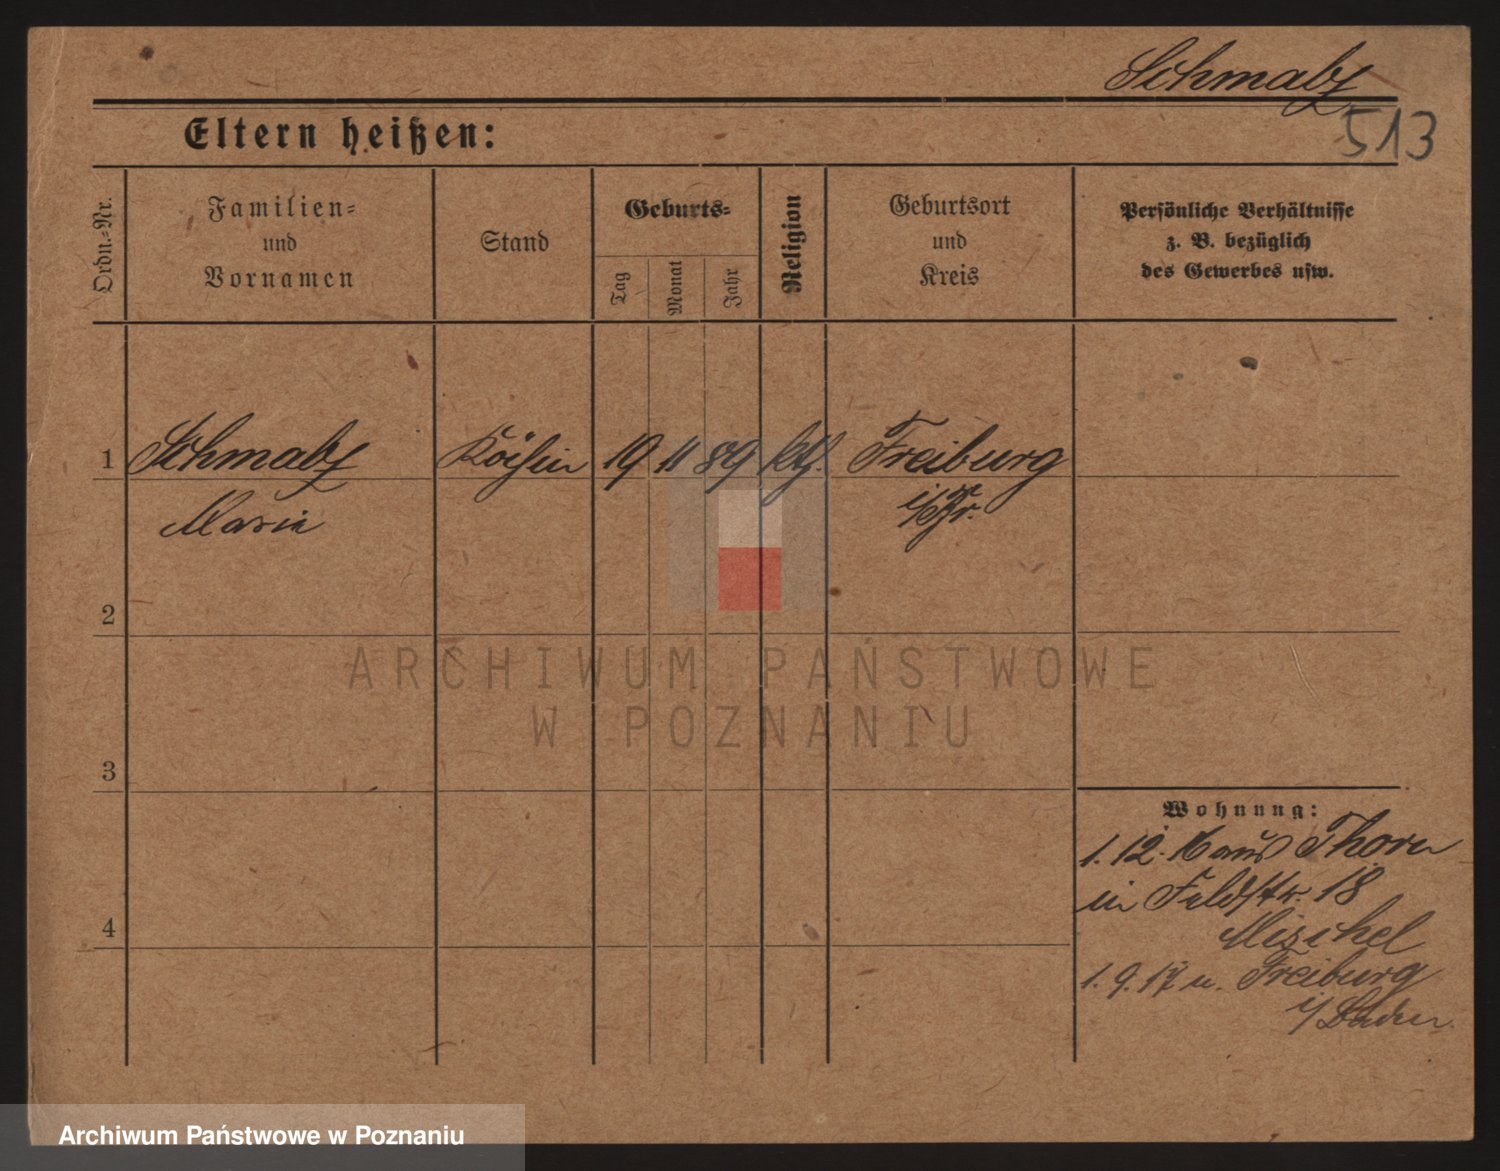 Schmalz
513
Eltern heißen:
Ordn.-Nr.
Familien-
und
Vornamen
Stand
Geburts-
Tag
Monat
Jahr
Religion
Geburtsort
und
Kreis
Persönliche Verhältnisse
z. B. bezüglich
des Gewerbes usw.
1
Schmalz
Köchin
19
11
89
kth.
Freiburg
Marie
i/Br.
2
3
4
ARCHIWUM PAŃSTWOWE
W POZNANIU
Wohnung:
1. 12. 16 aus Thorn
in Feldstr. 18
Mischel
1. 9. 17 n. Freiburg
i/Baden
Archiwum Państwowe w Poznaniu